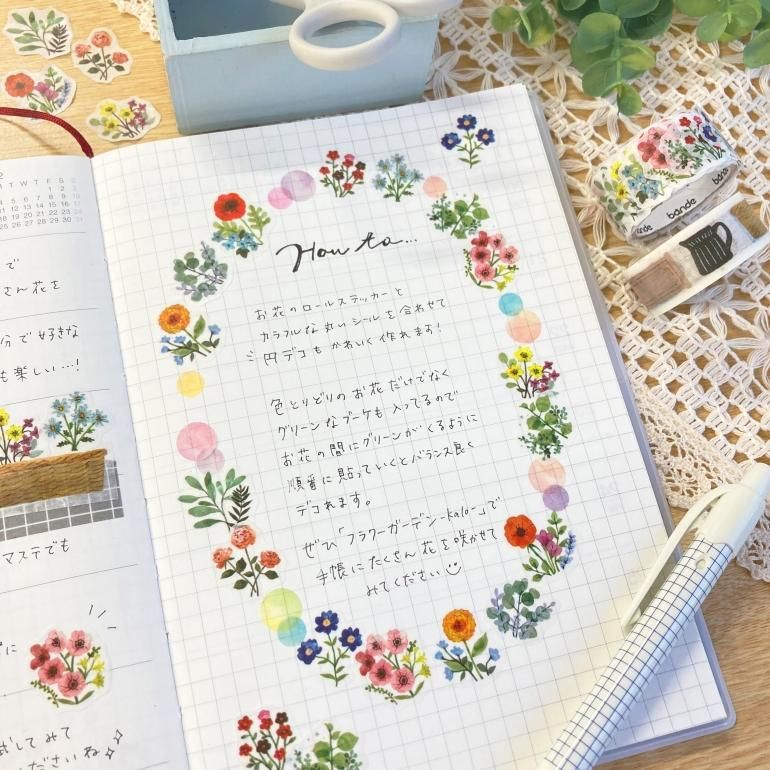 2
T W T F S
1 2 3
で
さん花を
分で好きな
も楽しい…!
マステでも
に
試してみて
くださいね
How to...
お花のロールステッカーと
カラフルな丸いシールを合わせて
円デコもかわいく作れます!
色とりどりのお花だけでなく
グリーンなブーケも入ってるので
お花の間にグリーンがくるように
順番に貼っていくとバランス良く
デコれます。
ぜひ「フラワーガーデン-kalo-」で
手帳にたくさん花を咲かせて
みてください
bande
bande